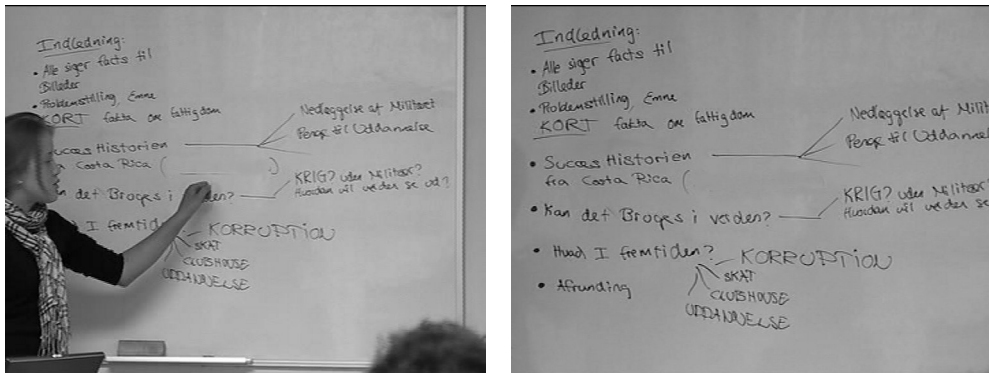 Indledning:
• Alle siger facts til
Billeder
• Problemstilling, Emne
KORT fakta om fattigdom
Succes Historien
fra Coosta Rica ( )
Nedlæggelse af Militæret
Penge til Uddannelse
det Bruges i verden?
KRIG? uden Militær?
Hvordan vil verden se ud?
I fremtiden
KORRUPTION
SKAT
CLUBHOUSE
UDDANNELSE
Indledning:
• Alle siger facts til
Billeder
• Problemstilling, Emne
KORT fakta om fattigdom
• Succes Historien
fra Coosta Rica (
Nedlæggelse af Milit
Penge til Uddannel
• Kan det Bruges i verden?
KRIG? uden Militær?
Hvordan vil verden se
• Hvad I fremtiden?
KORRUPTION
SKAT
CLUBHOUSE
UDDANNELSE
• Afrunding